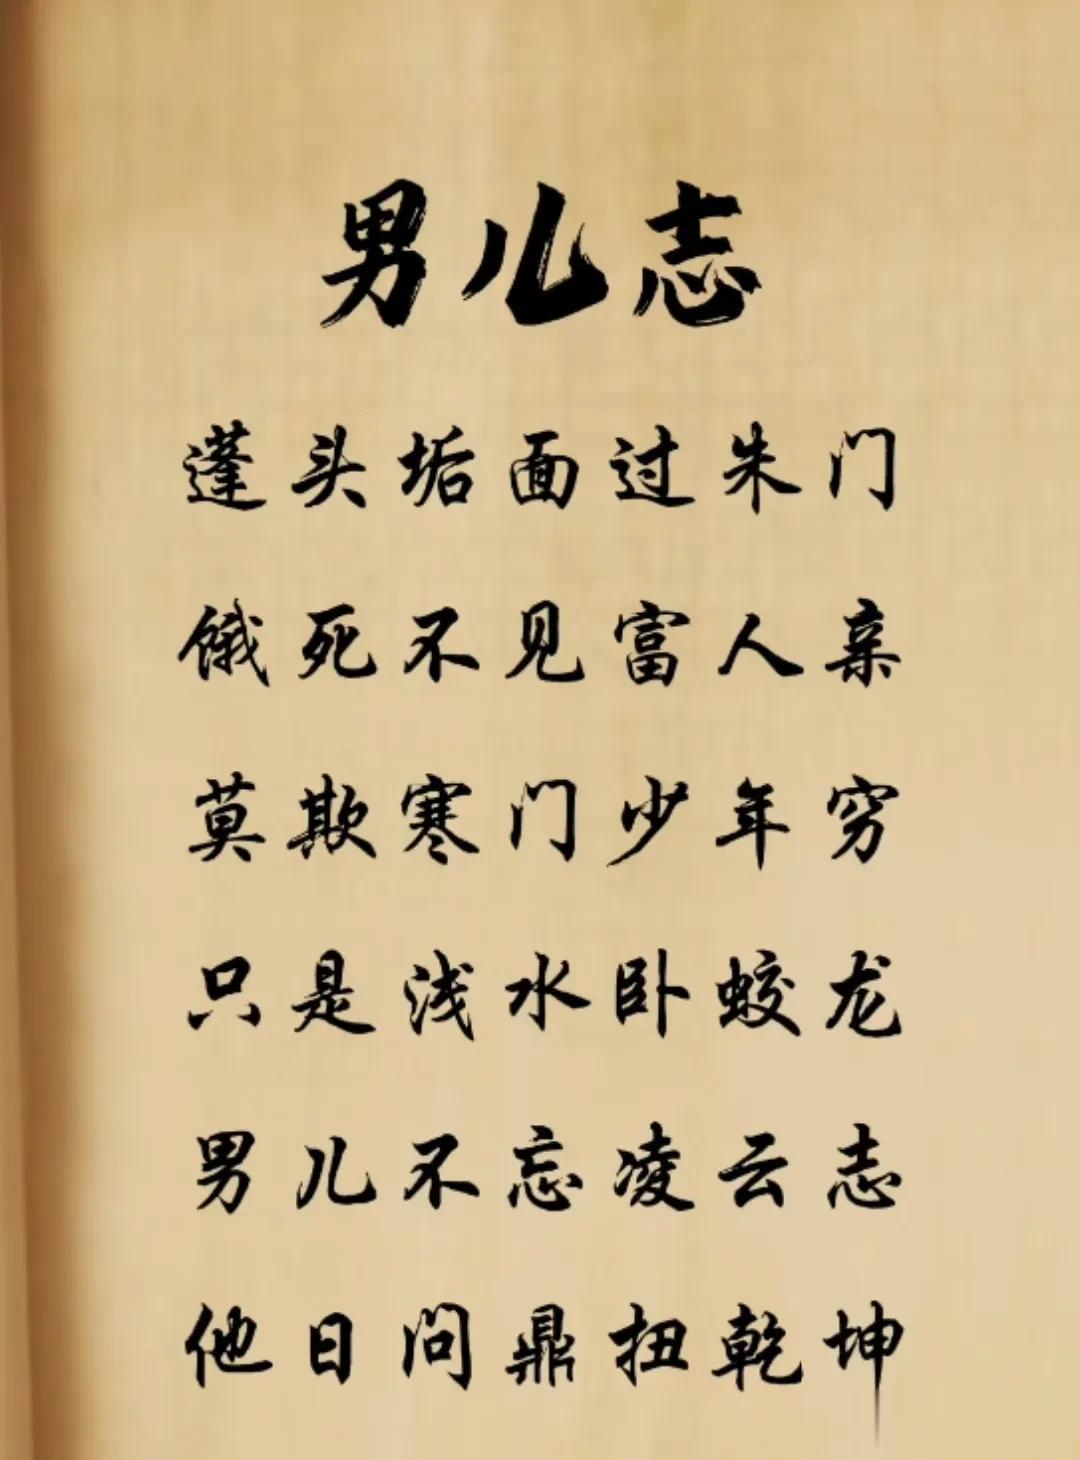 男儿志
蓬头垢面过朱门
饿死不见富人亲
莫欺寒门少年穷
只是浅水卧蛟龙
男儿不忘凌云志
他日问鼎扭乾坤